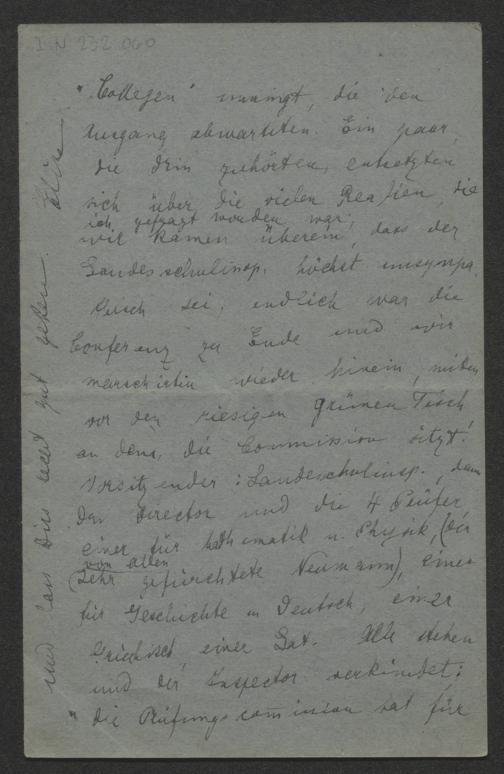 I N 232 060
"Collegen" umringt, die den
Ausgang abwarteten. Ein paar,
die drin zuhörten, entsetzten
sich über die vielen Realien, die
ich gefragt worden war;
wir kamen überein, dass der
Landesschulinsp. höchst unsympa
tisch sei, endlich war die
Conferenz zu Ende und wir
marschirten wieder hinein, mitten
vor den riesigen grünen Tisch
an dem, die Commission sitzt!
Vorsitzender: Landesschulinsp., dann
der Director und die 4 Prüfer
einer für Mathematik u. Physik, (der
von allen
sehr gefürchtete Neumann), einer
für Geschichte u Deutsch, einer
Griechisch, einer Lat. Alle stehen
und der Inspector verkündet:
"die Prüfungscommission hat für
und lass Dirs recht gut gehen.